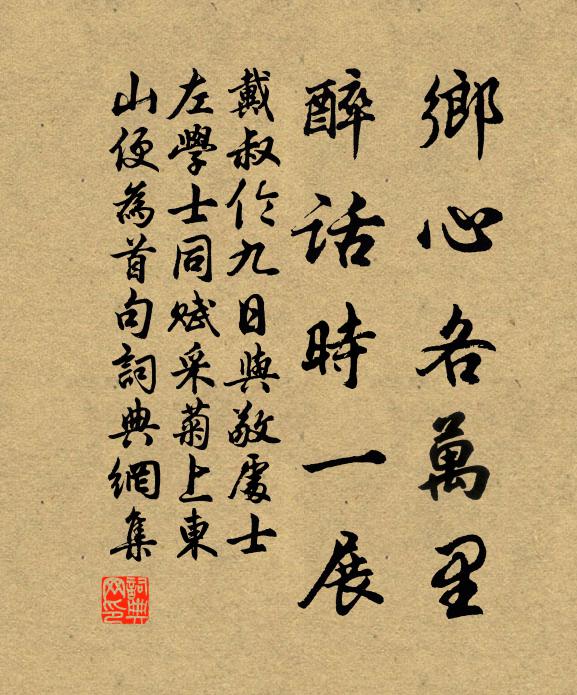 鄉心各萬里
醉話時一展
戴叔伦九日與敬處士
左學士同赋采菊上東
山便為首句詞典網集
詞典网印